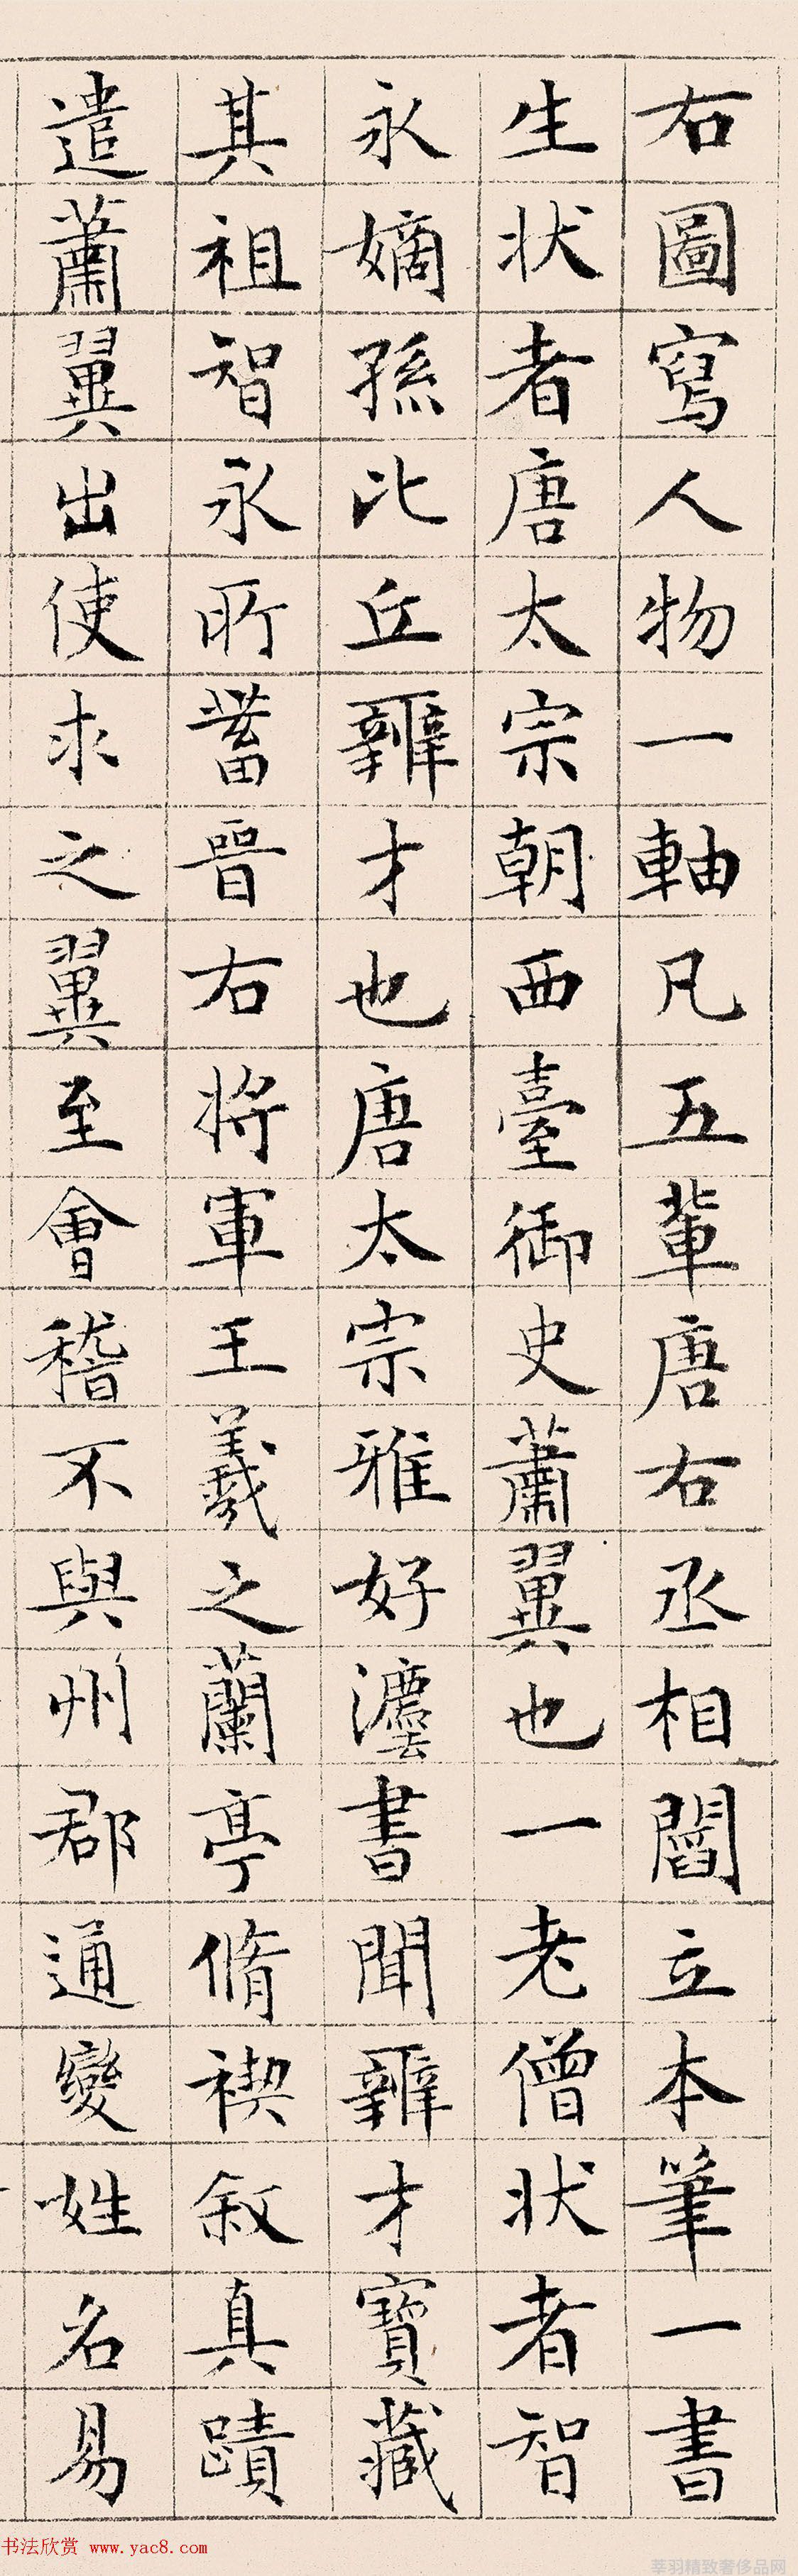 右圖寫人物一軸凡五輩唐右丞相閻立本筆一書
生狀者唐太宗朝西臺御史蕭翼也一老僧狀者智
永嫡孫比丘辨才也唐太宗雅好灋書聞辨才寶藏
其祖智永所蓄晉右將軍王羲之蘭亭脩禊敘真蹟
遣蕭翼出使求之翼至會稽不與州郡通變姓名易
书法欣赏 www.yac8.com
莘羽精致奢侈品网